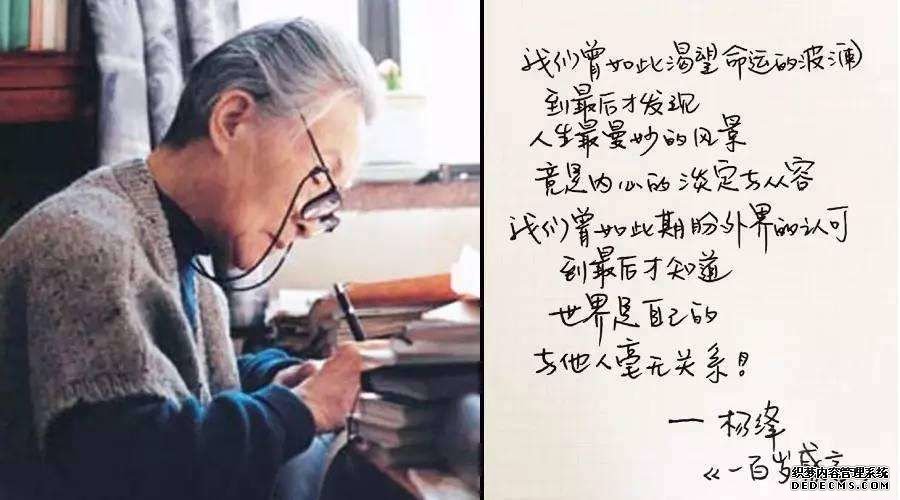 我们曾如此渴望命运的波澜
到最后才发现
人生最曼妙的风景
竟是内心的淡定与从容
我们曾如此期盼外界的认可
到最后才知道
世界是自己的
与他人毫无关系！
— 杨绛
《一百岁感言
织梦内容管理系统
DEDECMS.COM